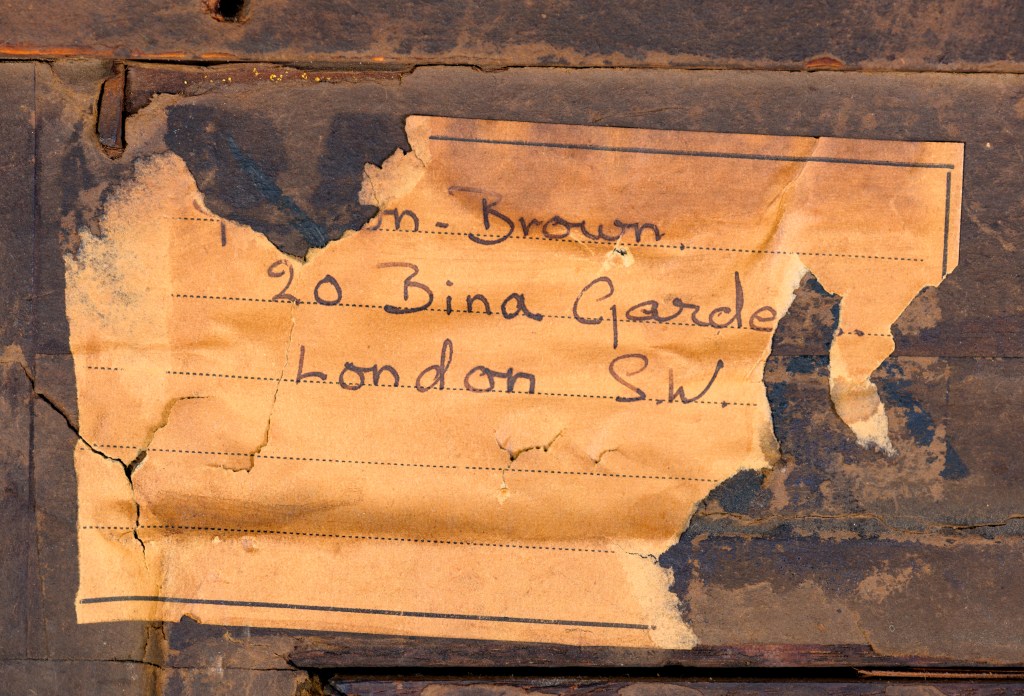 on-Brown.
20 Bina Garde
London S.W.